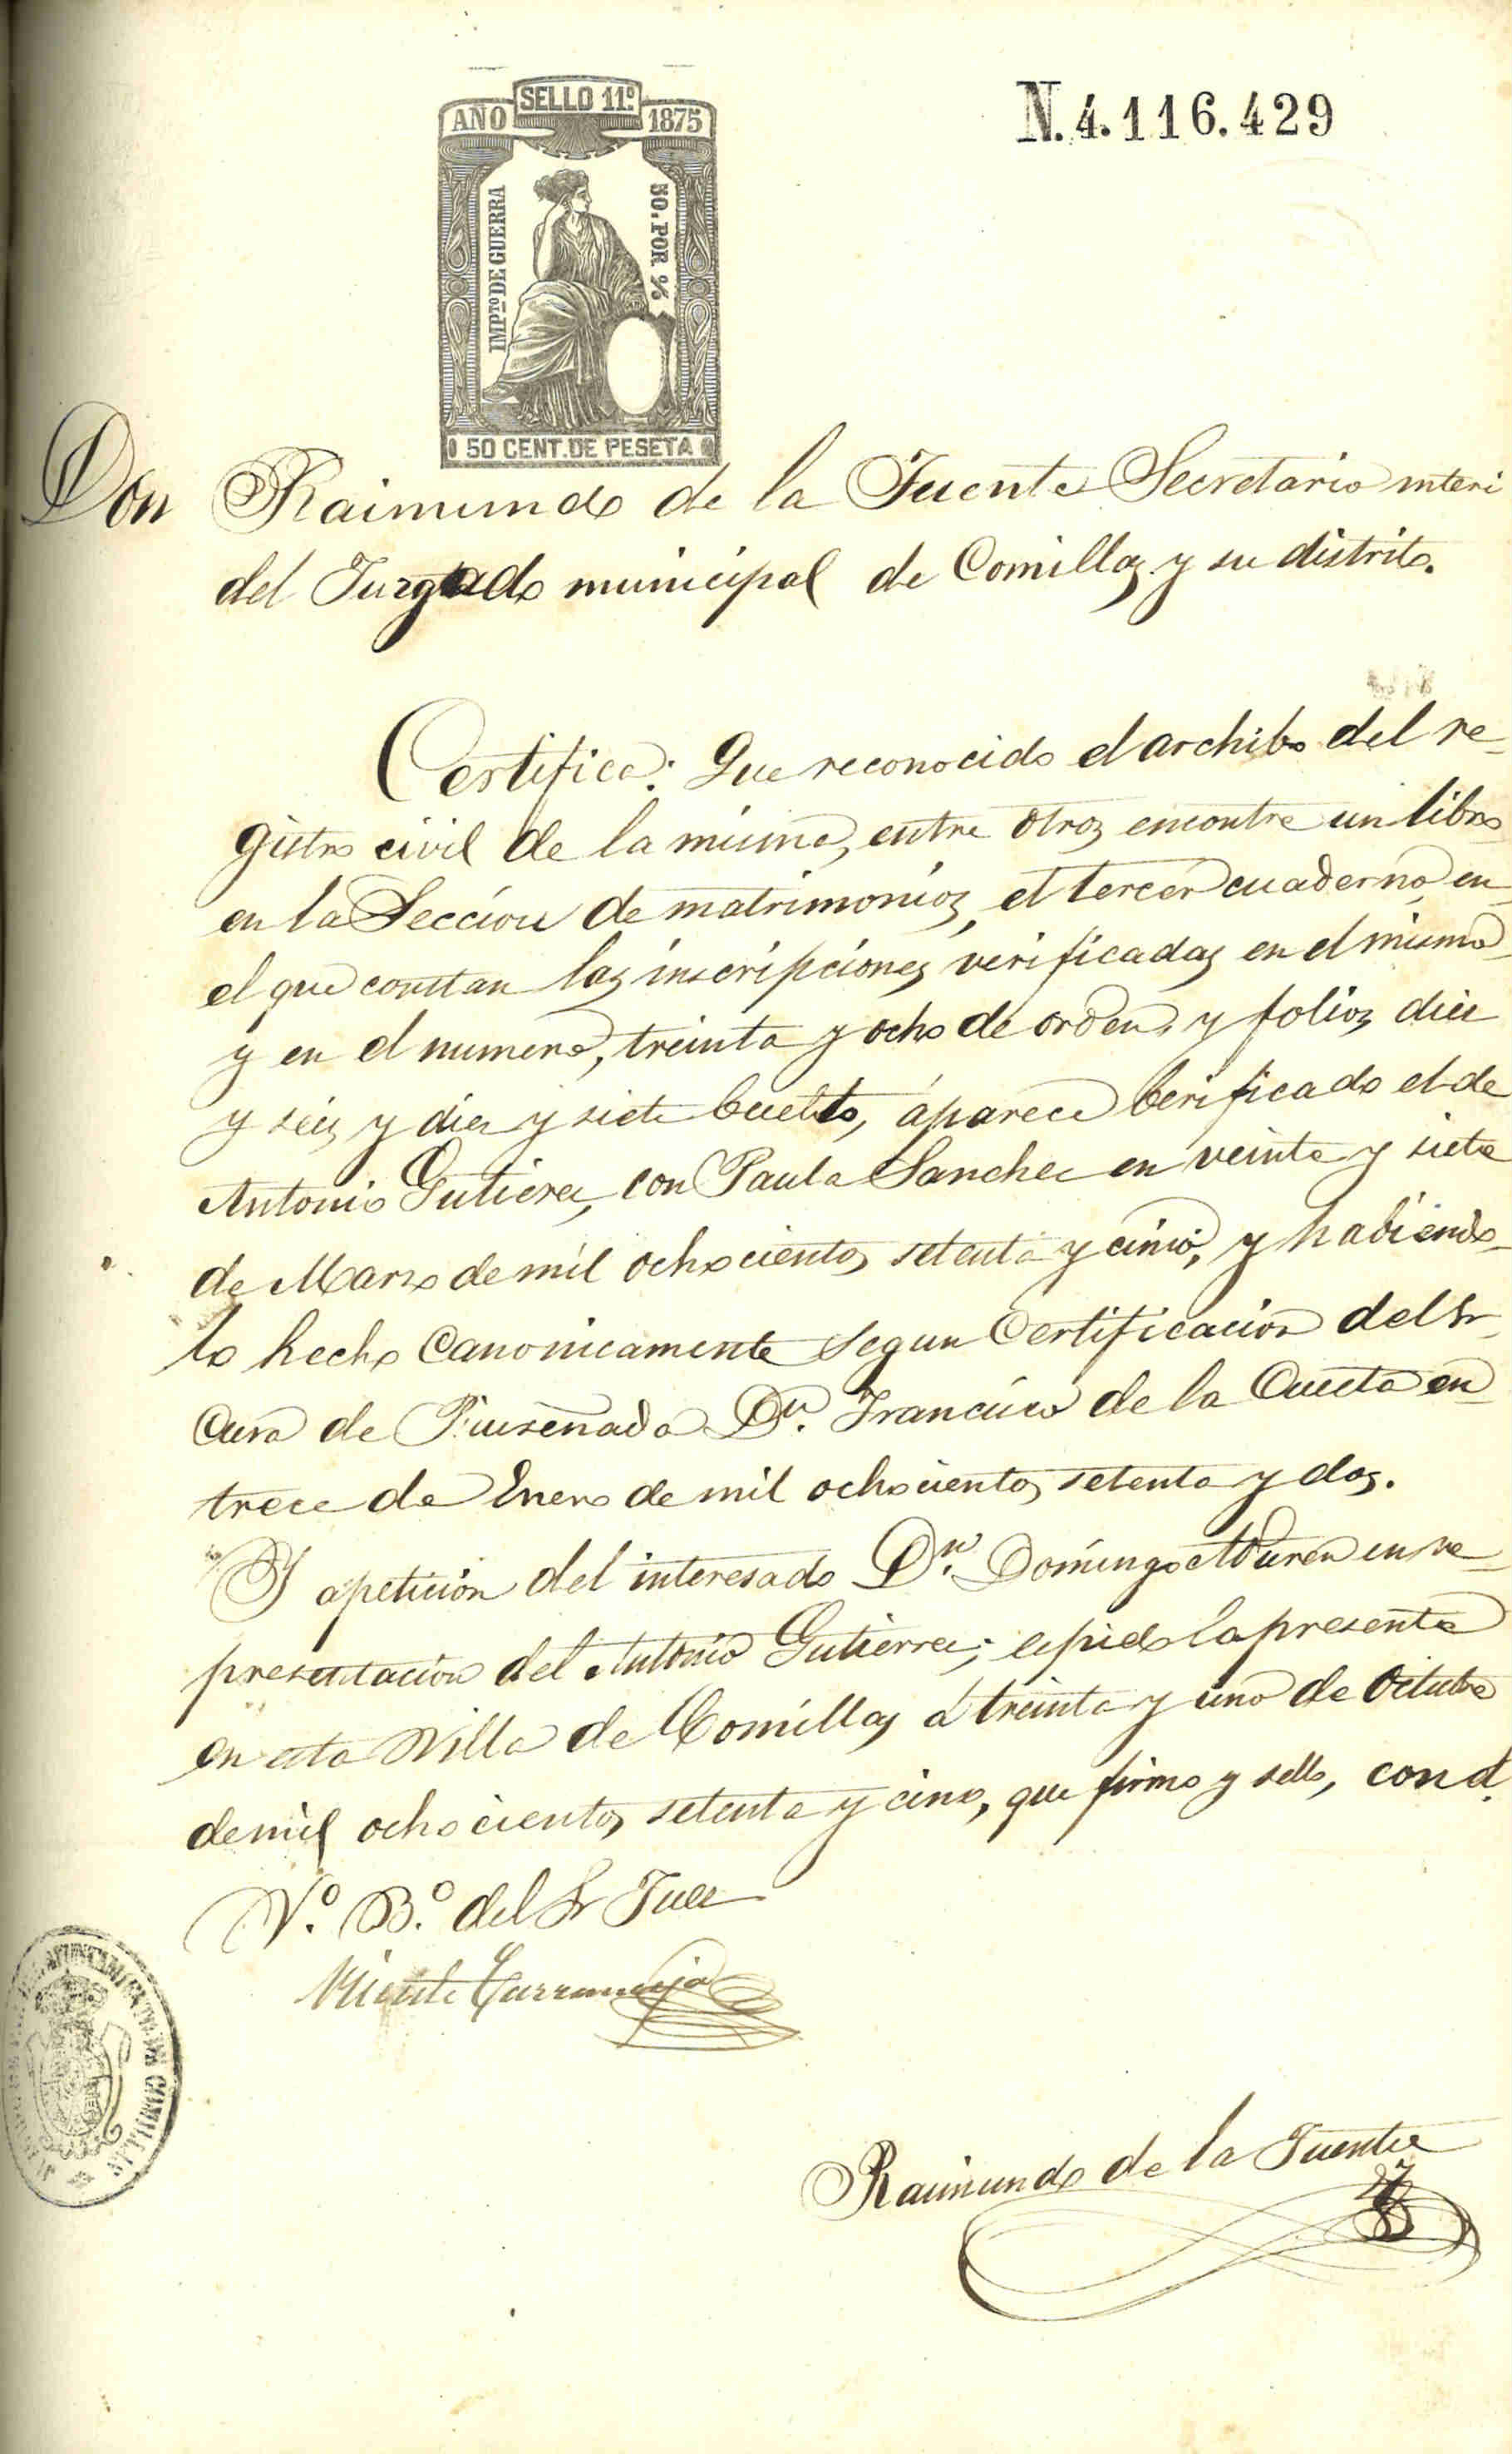 SELLO 11º
AÑO 1875
N. 4.116.429
IMPTO DE GUERRA
50. POR %
50 CENT. DE PESETA
Don Raimundo de la Fuente Secretario interi
del Juzgado municipal de Comillas y su distrito.
Certifico: Que reconocido el archibo del re-
gistro civil de la misma, entre otros encontre un libro
en la Seccion de matrimonios, el tercer cuaderno, en
el que constan las inscripciones verificadas en el mismo
y en el numero, treinta y ocho de orden, y folios diez
y seis y diez y siete buelto, aparece berificado el de
Antonio Gutierez, con Paula Sanchez en veinte y siete
de Marzo de mil ochocientos setenta y cinco, y habiendo-
lo hecho Canonicamente segun Certificacion del Sr
Cura de Ruiseñada Dn. Francisco de la Cuesta en
trece de Enero de mil ochocientos setenta y dos.
Y apetición del interesado Dn. Domingo en re-
presentacion del Antonio Gutierrez; espido la presente
en esta Villa de Comillas á treinta y uno de Octubre
de mil ochocientos setenta y cinco, que firmo y sello, con el
Vº. Bº. del Sr Juez
Vicente
AYUNTAMIENTO DE COMILLAS
Raimundo de la Fuente